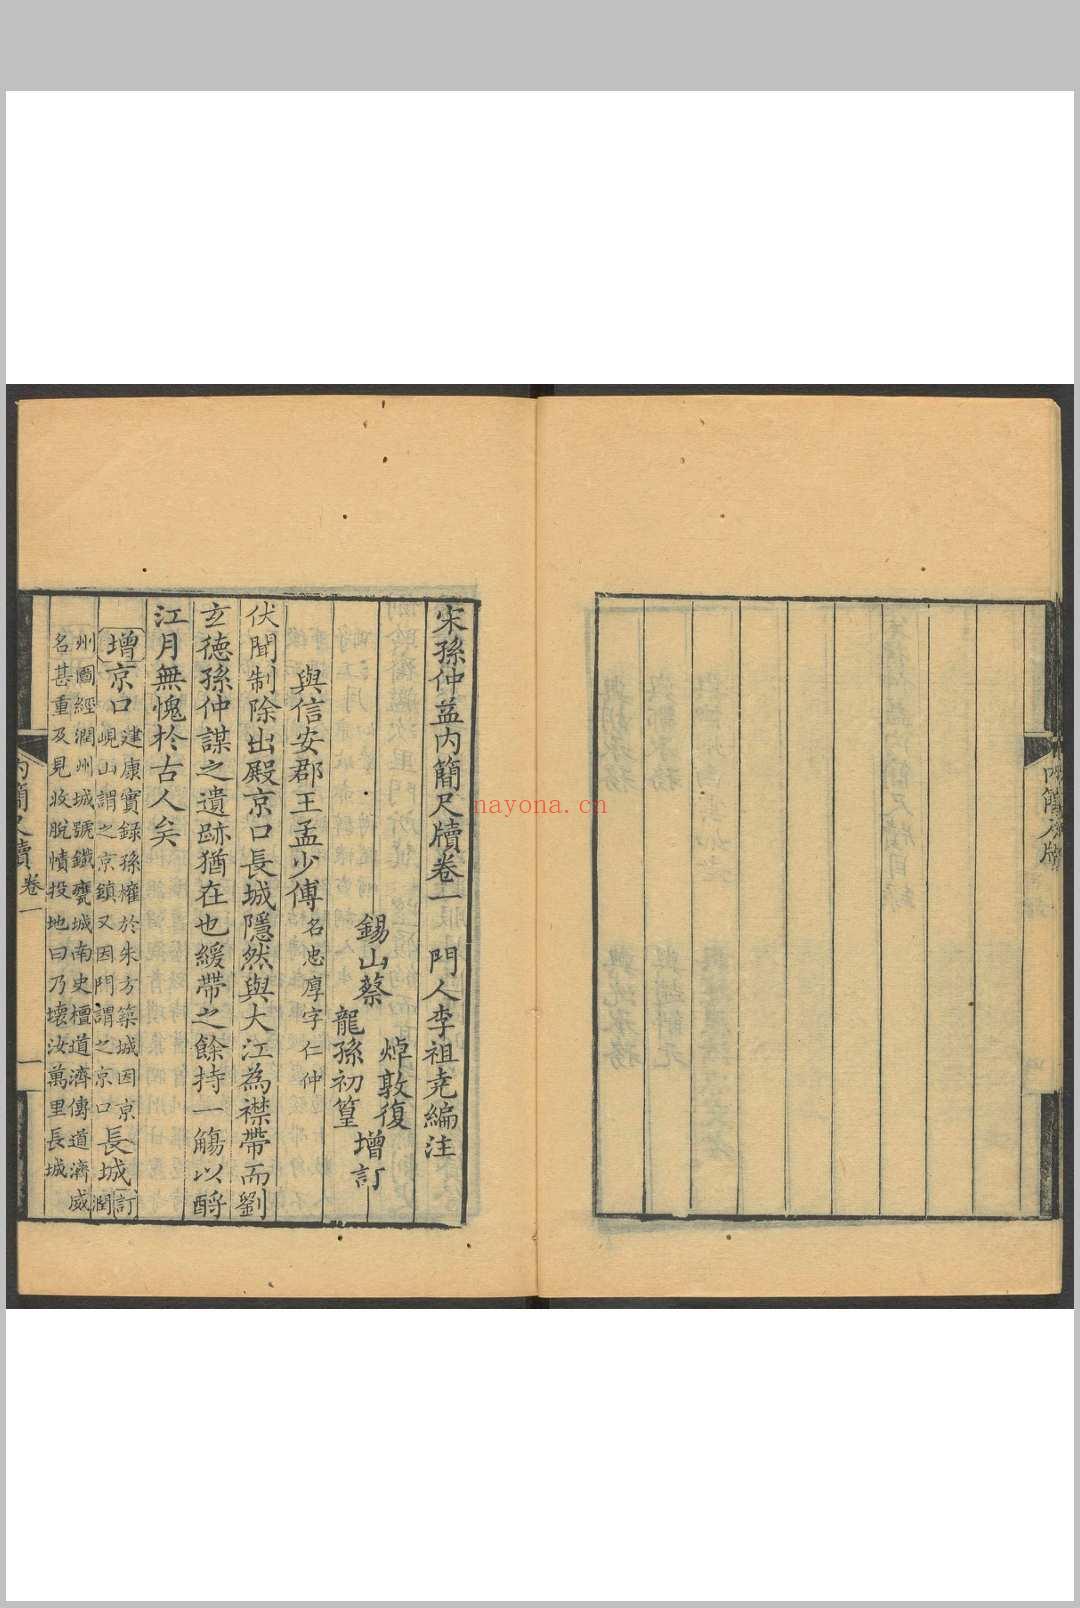 宋孫仲益内簡尺牘卷一 門人李祖堯編注
錫山蔡
焯敦復
龍孫初篁
增訂
與信安郡王孟少傅名忠厚字仁仲
伏聞制除出殿京口長城隱然與大江為襟帶而劉
玄德孫仲謀之遺跡猶在也緩帶之餘持一觴以酹
江月無愧於古人矣
增京口
建康實録孫權於朱方築城因京
峴山謂之京鎮又因門謂之京口
長城
訂
潤
州圖經潤州城號鐵甕城南史檀道濟傳道濟威
名甚重及見收脫幘投地曰乃壞汝萬里長城
内簡尺牘 卷一
一
内簡尺牘
nayona.cn